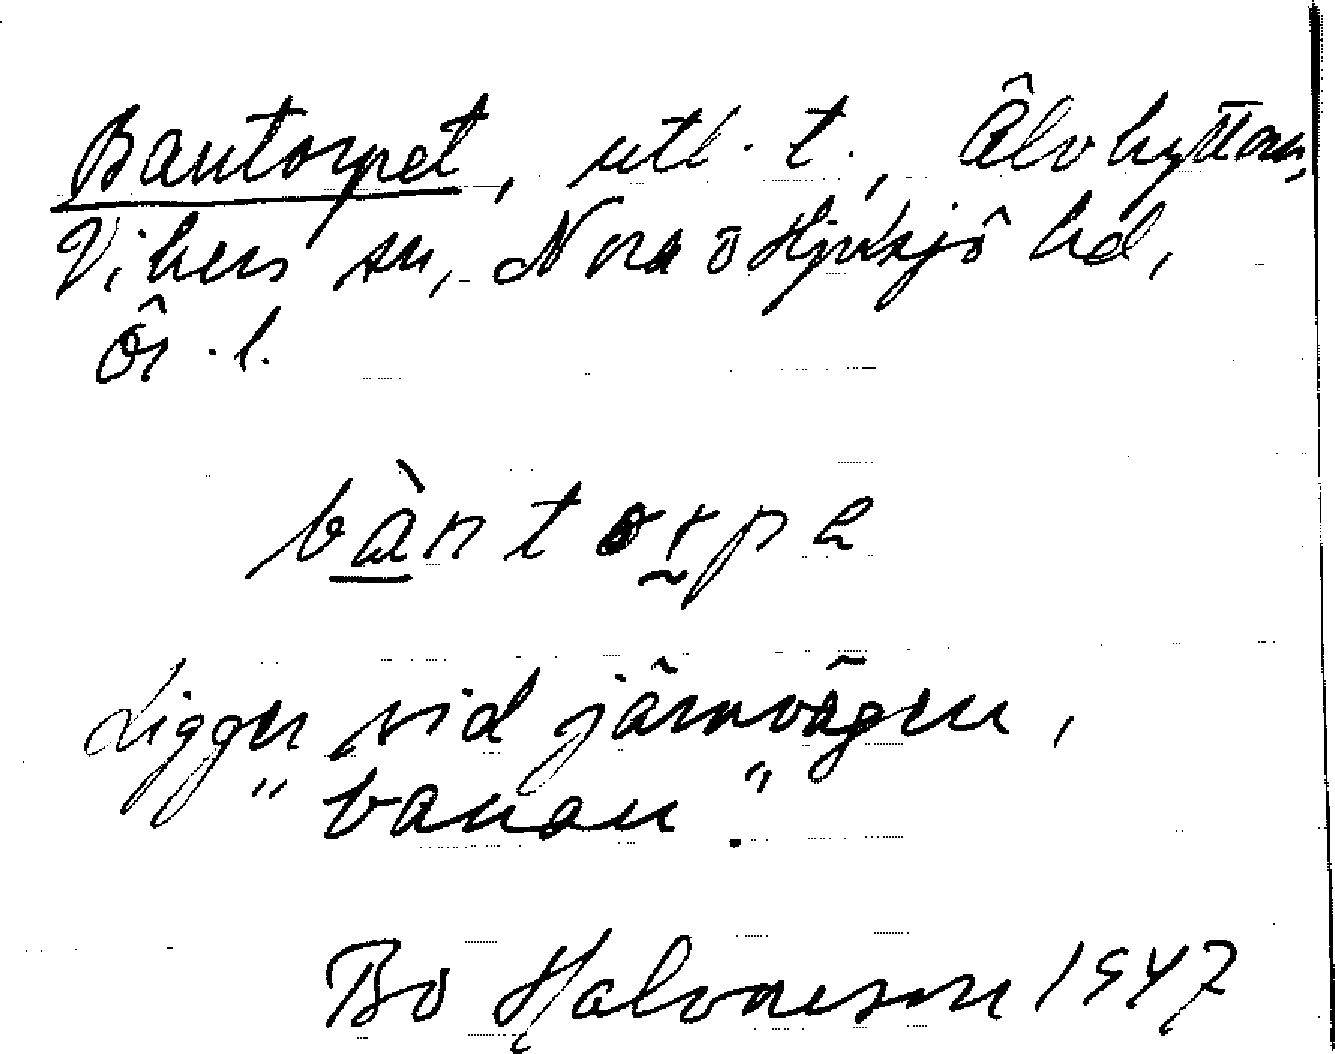 Bantorpet, utl. t., Älvhyttan,
Vikers sn, Nora o Hjulsjö hd,
Ör. l.
bàntorpe
Ligger vid järnvägen,
"banan".
Bo Halvarsson 1947